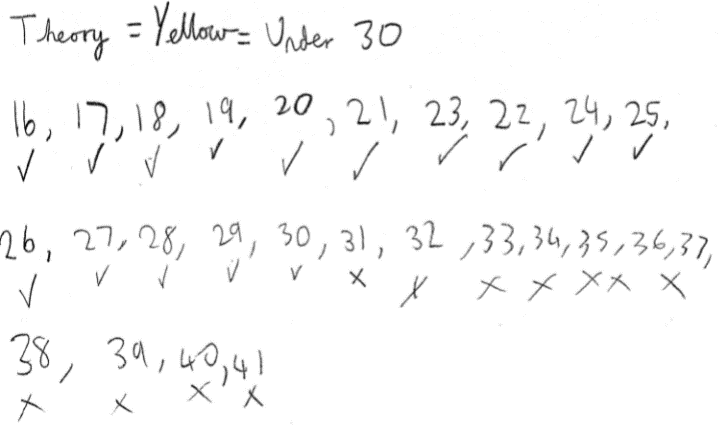 Theory = Yellow = Under 30
16, 17, 18, 19, 20, 21, 23, 22, 24, 25,
✓ ✓ ✓ ✓ ✓ ✓ ✓ ✓ ✓ ✓
26, 27, 28, 29, 30, 31, 32, 33, 34, 35, 36, 37,
✓ ✓ ✓ ✓ ✓ x x x x x x x
38, 39, 40, 41
x x x x